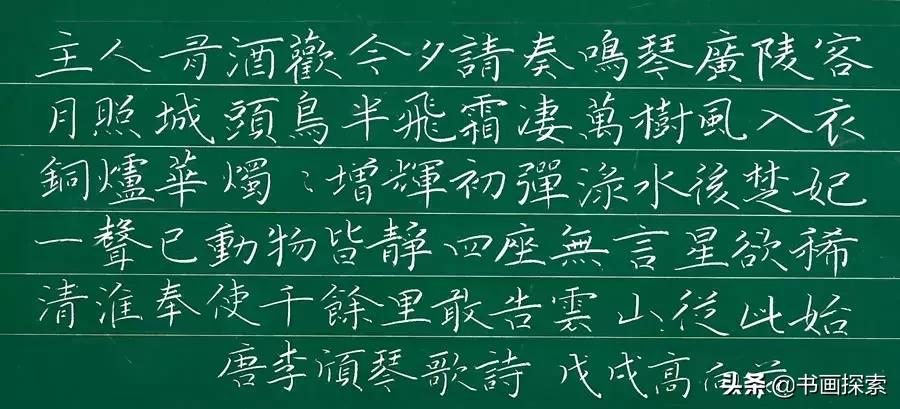 主人㝵酒歡今夕請奏鳴琴廣陵客
月照城頭烏半飛霜凄萬樹風入衣
銅爐華燭〻增輝初彈淥水後楚妃
一聲已動物皆靜四座無言星欲稀
清淮奉使千餘里敢告雲山從此始
唐李頎琴歌詩 戊戌高
头条@书画探索